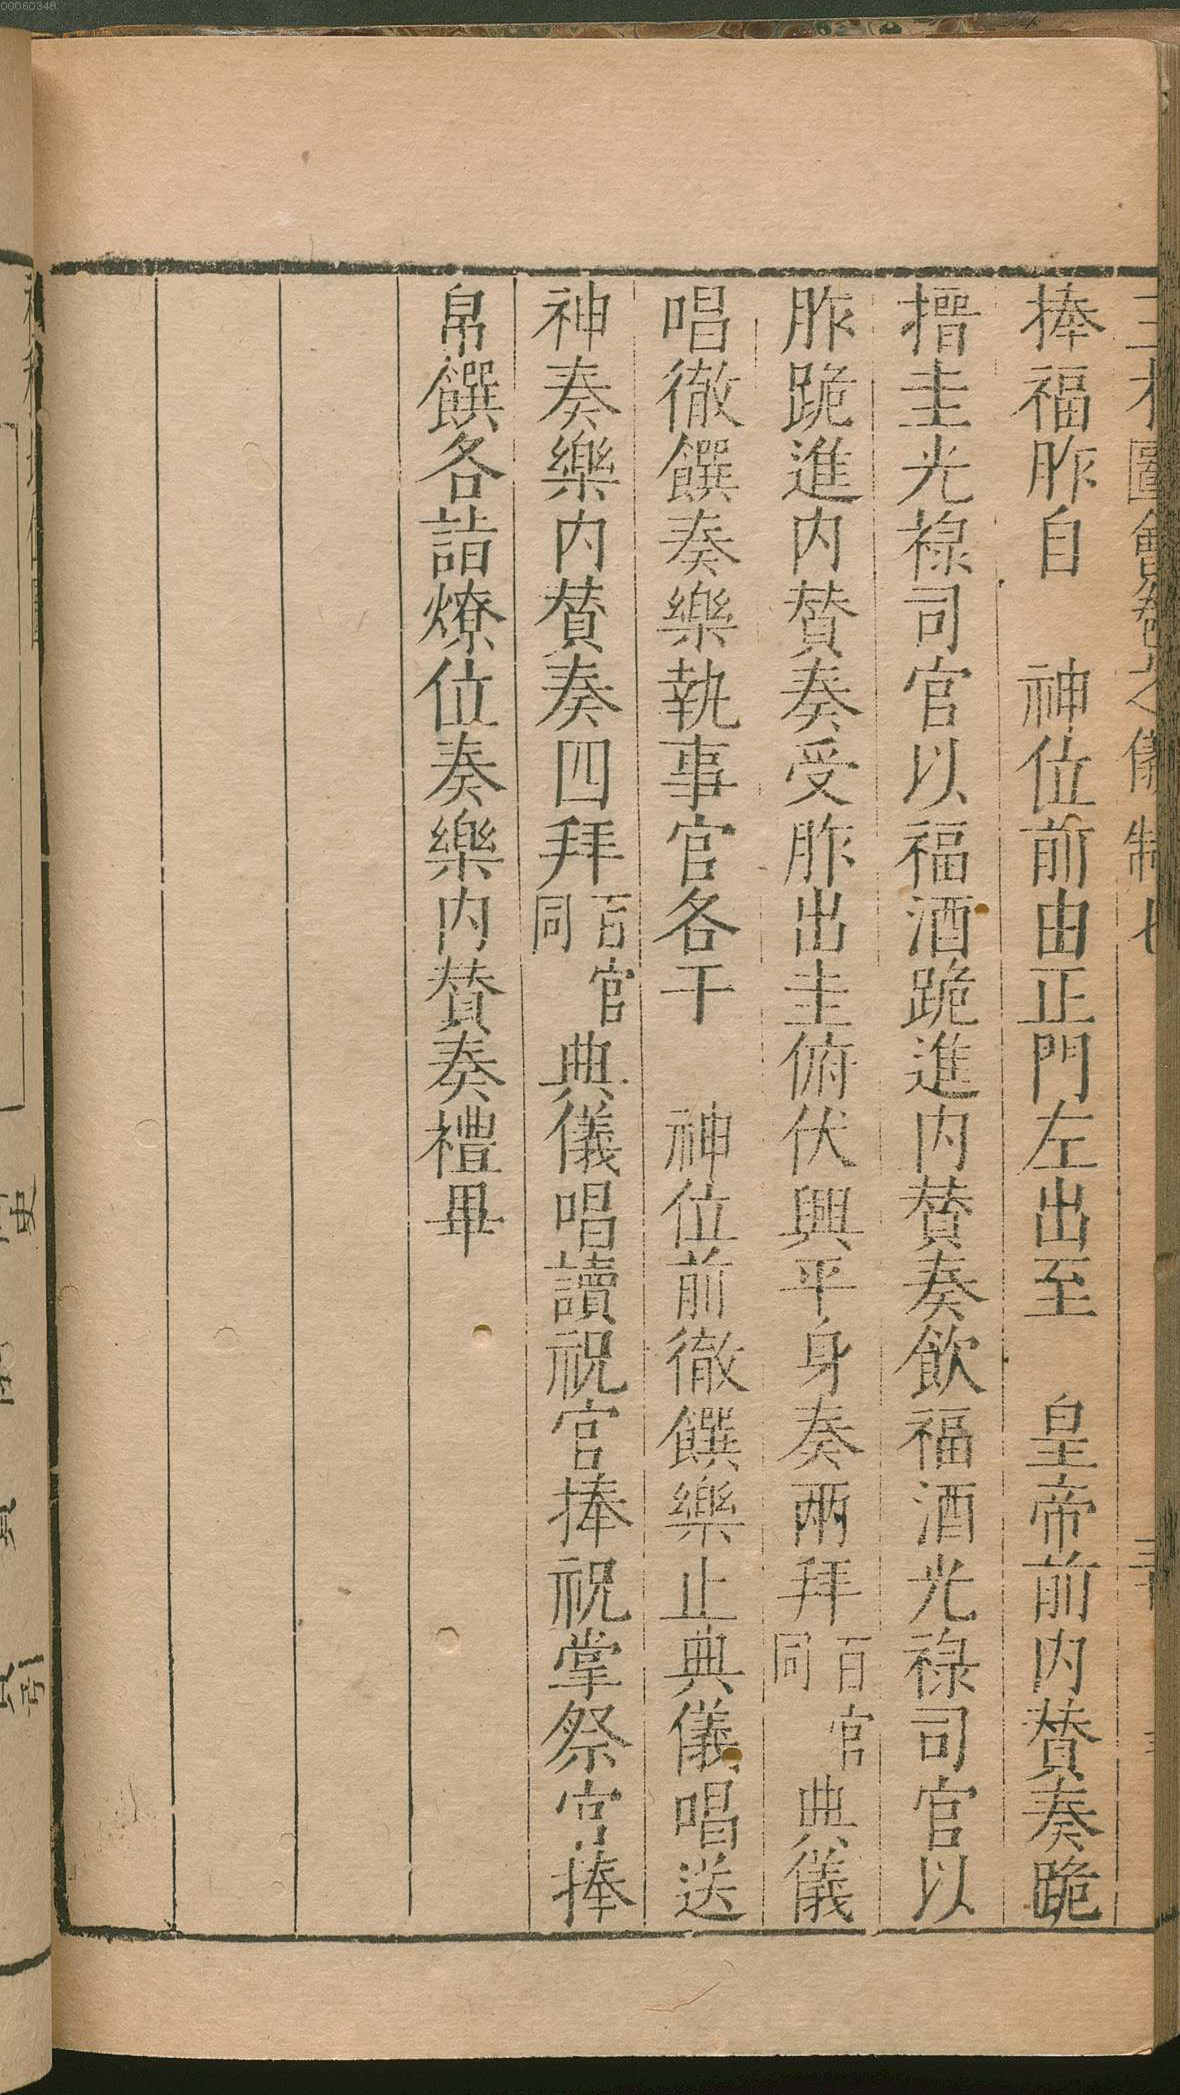 三才圖會卷之儀制七
捧福胙自　神位前由正門左出至　皇帝前內贊奏跪
搢圭光祿司官以福酒跪進內贊奏飲福酒光祿司官以
胙跪進內贊奏受胙出圭俯伏興平身奏兩拜百官同典儀
唱徹饌奏樂執事官各于　神位前徹饌樂止典儀唱送
神奏樂內贊奏四拜百官同典儀唱讀祝官捧祝掌祭官捧
帛饌各詣燎位奏樂內贊奏禮畢
00060348